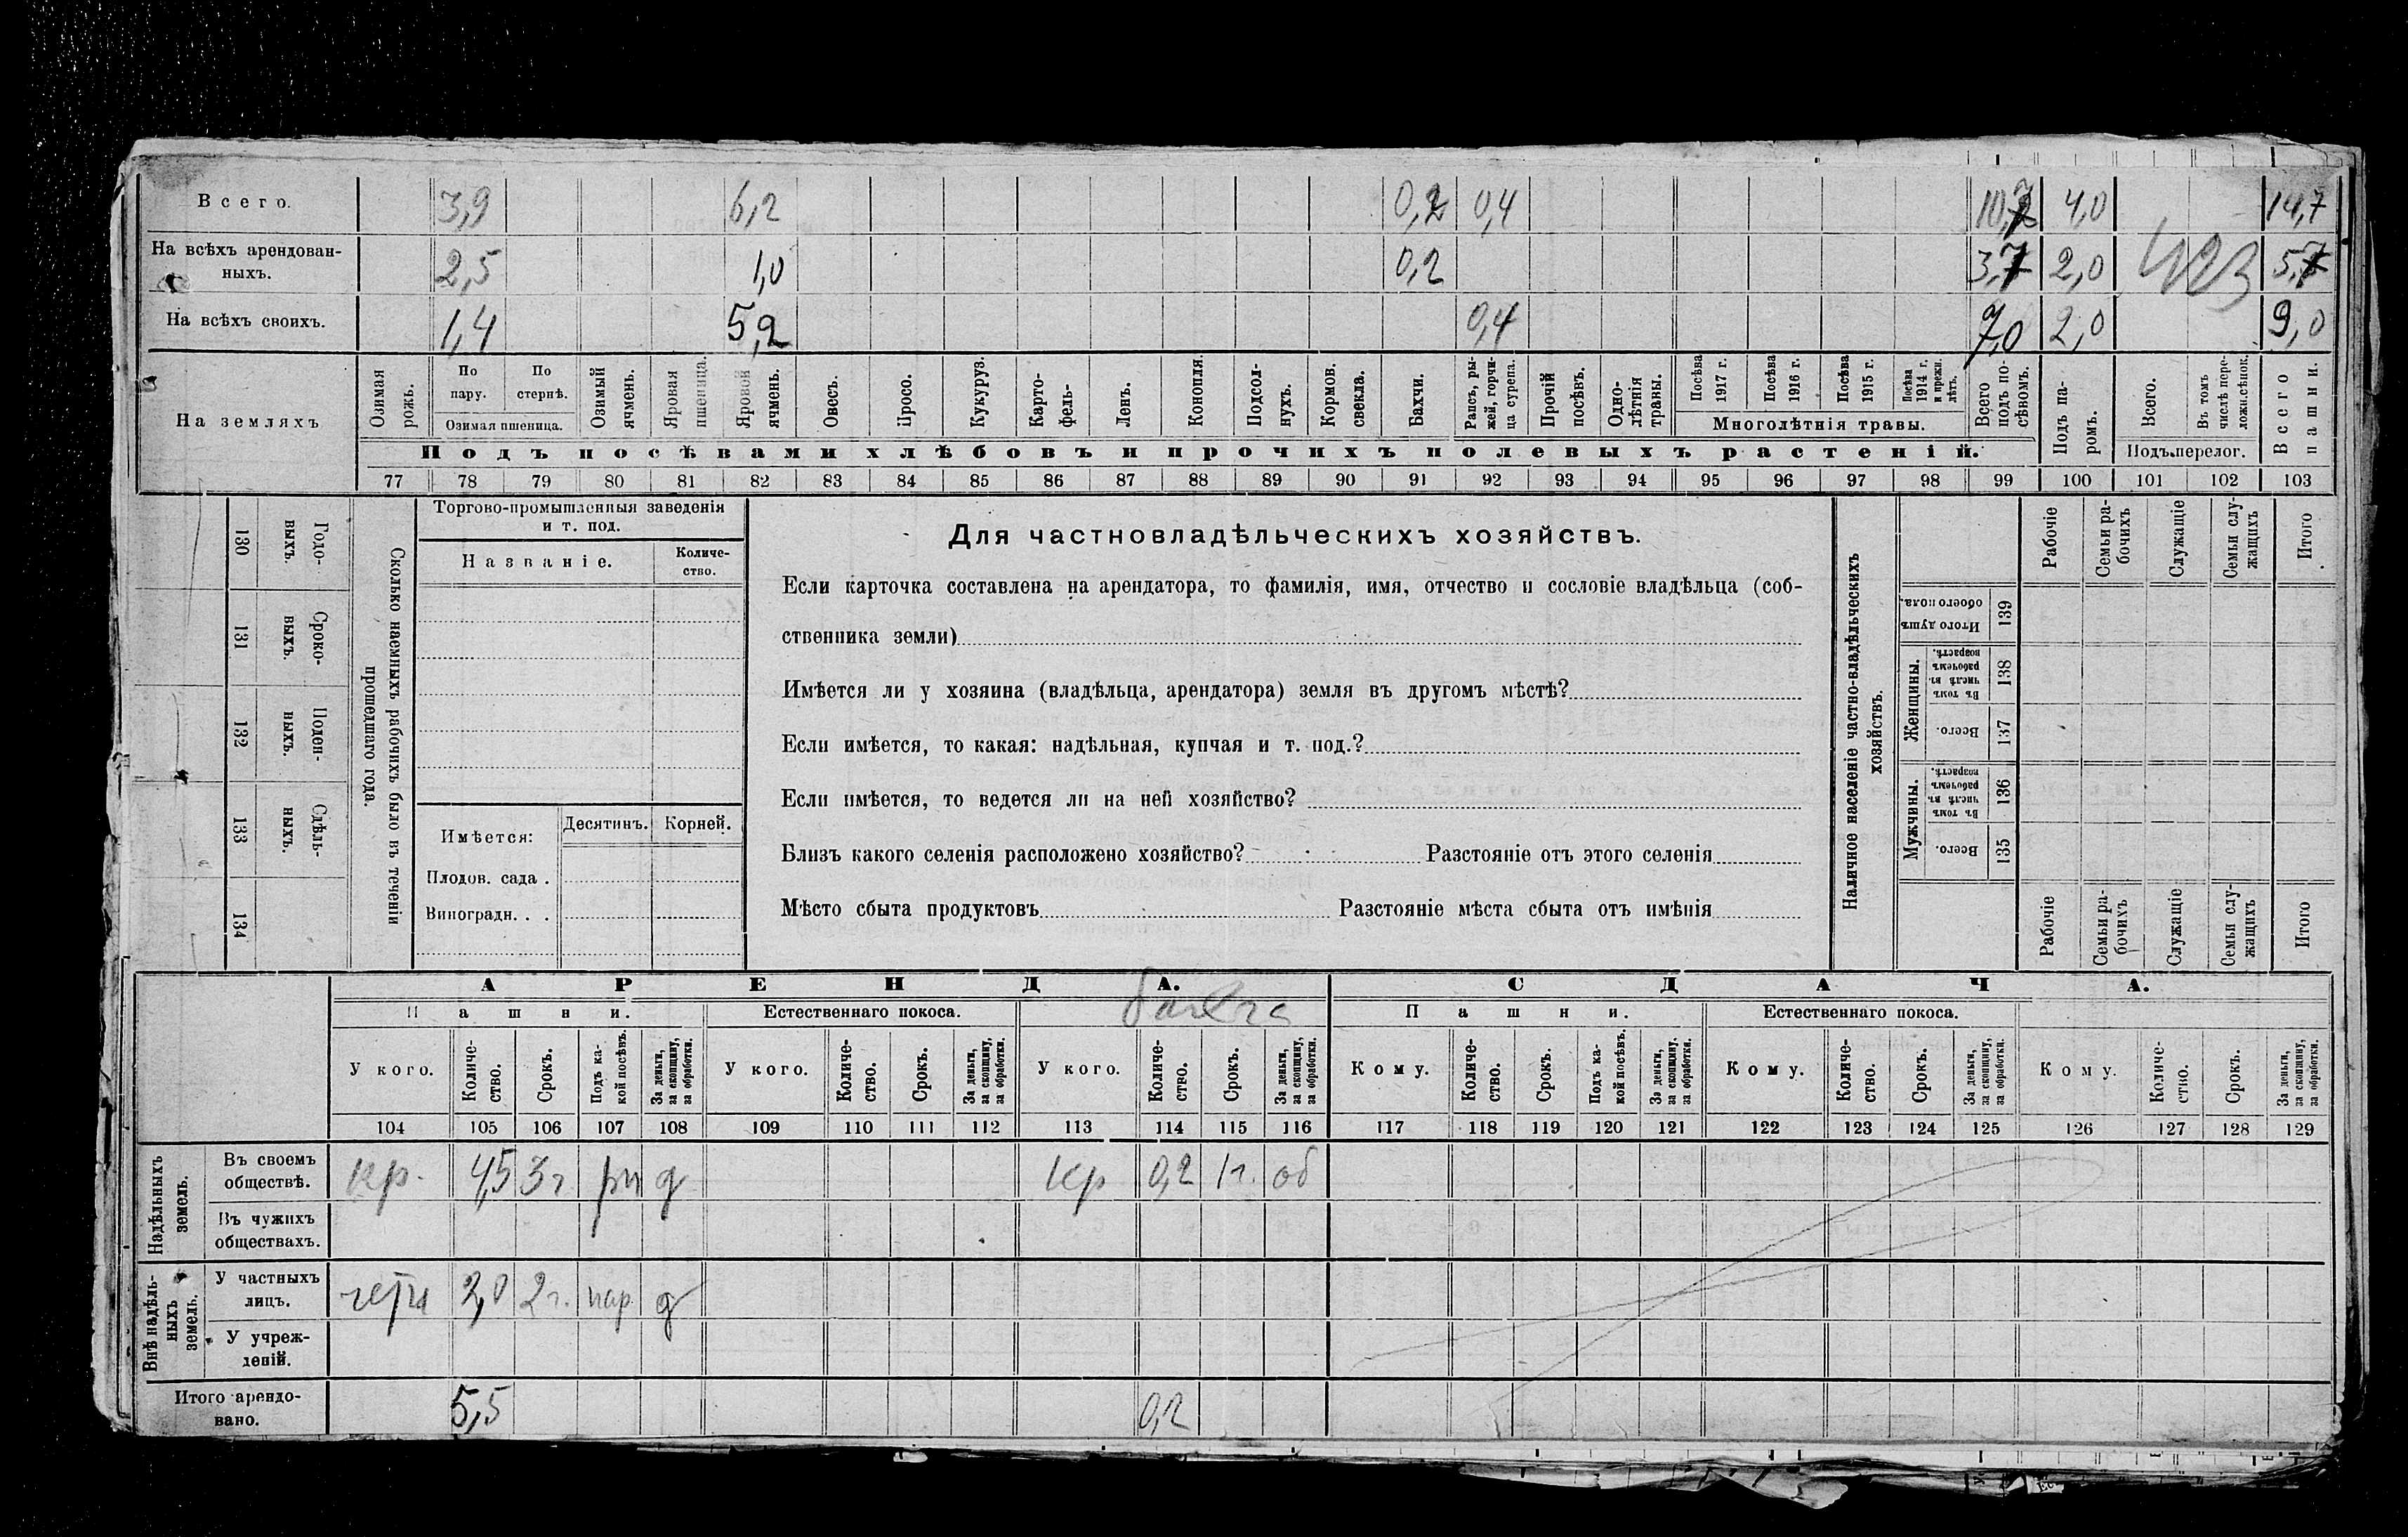 Всего. 3,9 6,2 0,2 0,4 10,7 4,0 14,7
На всѣхъ арендован-
ныхъ. 2,5 1,0 0,2 3,7 2,0 5,7
423
На всѣхъ своихъ. 1,4 5,2 0,4 7,0 2,0 9,0
На земляхъ
Озимая рожь.
По пару.
По стернѣ.
Озимая пшеница.
Озимый ячмень.
Яровая пшеница.
Яровой ячмень.
Овесъ.
Просо.
Кукуруз.
Карто-
фель-
Ленъ.
Конопля.
Подсол-
нухъ.
Кормов. свекла.
Бахчи.
Рапсъ, ры-
жей, горчи-
ца сурепа.
Прочій посѣвъ.
Одно-
лѣтнія травы.
Посѣва 1917 г.
Посѣва 1916 г.
Посѣва 1915 г.
Посѣва 1914 г. и прежн. лѣтъ.
Многолѣтнія травы.
Всего подъ по-
сѣвомъ.
Подъ па-
ромъ.
Всего.
Въ томъ числѣ пере-
ложн.сѣнок.
Подъ перелог.
Всего пашни.
Подъ посѣвами хлѣбовъ и прочихъ полевыхъ растеній.
77 78 79 80 81 82 83 84 85 86 87 88 89 90 91 92 93 94 95 96 97 98 99 100 101 102 103
130 Годо-
выхъ.
131 Сроко-
выхъ.
132 Поден-
ныхъ.
133 Сдѣль-
ныхъ.
134
Сколько наемныхъ рабочихъ было въ теченіи
прошедшаго года.
Торгово-промышленныя заведенія
и т. под.
Названіе.
Количе-
ство.
Имѣется:
Десятинъ. Корней.
Плодов. сада .
Виноградн. . .
Для частновладѣльческихъ хозяйствъ.
Если карточка составлена на арендатора, то фамилія, имя, отчество и сословіе владѣльца (соб-
ственника земли)
Имѣется ли у хозяина (владѣльца, арендатора) земля въ другомъ мѣстѣ?
Если имѣется, то какая: надѣльная, купчая и т. под.?
Если имѣется, то ведется ли на ней хозяйство?
Близъ какого селенія расположено хозяйство? Разстояніе отъ этого селенія
Мѣсто сбыта продуктовъ Разстояніе мѣста сбыта отъ имѣнія
Наличное населеніе частно-владѣльческихъ
хозяйствъ.
Рабочіе
Семьи ра-
бочихъ
Служащіе
Семьи слу-
жащихъ
Итого
Итого душъ обоего пола. 139
Женщины.
Въ томъ числѣ въ рабочемъ возрастѣ. 138
Всего. 137
Мужчины.
Въ томъ числѣ въ рабочемъ возрастѣ. 136
Всего. 135
Рабочіе
Семьи ра-
бочихъ
Служащіе
Семьи слу-
жащихъ
Итого
АРЕНДА. СДАЧА.
Пашни. Естественнаго покоса. Пашни. Естественнаго покоса.
У кого.
Количе-
ство.
Срокъ.
Подъ ка-
кой посѣвъ.
За деньги,
за скопщину,
за обработки.
У кого.
Количе-
ство.
Срокъ.
За деньги,
за скопщину,
за обработки.
У кого.
Количе-
ство.
Срокъ.
За деньги,
за скопщину,
за обработки.
Кому.
Количе-
ство.
Срокъ.
Подъ ка-
кой посѣвъ.
За деньги,
за скопщину,
за обработки.
Кому.
Количе-
ство.
Срокъ.
За деньги,
за скопщину,
за обработки.
Кому.
Количе-
ство.
Срокъ.
За деньги,
за скопщину,
за обработки.
104 105 106 107 108 109 110 111 112 113 114 115 116 117 118 119 120 121 122 123 124 125 126 127 128 129
Надѣльныхъ
земель.
Въ своемъ
обществѣ. кр. 4,5 3 г д кр 0,2 1 г. об
Въ чужихъ
обществахъ.
Внѣ надѣль-
ныхъ
земель.
У частныхъ
лицъ. 2,0 2 г. пар. д
У учреж-
деній.
Итого арендо-
вано. 5,5 0,2